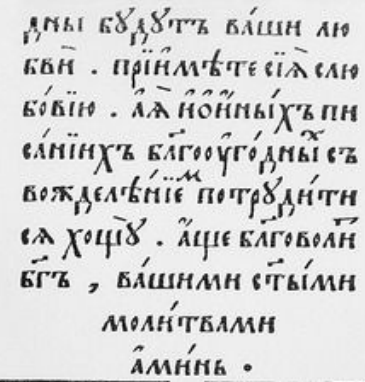 дны бꙋ́дꙋтъ ва́ши лю
бви̂ . прїи̂мѣте сїѧ̂ слю
бо́вїю . а̂ѧ̂ и̂о̂и̂ны́хъ пи
са́нїихъ бл҃гооу̂го́дныⷯ съ
вожделѣ́нїеⷨ потрꙋди́ти
сѧ хощꙋ̀ . а̂ще бл҃говоли́т̾
бг҃ъ , ва́шими ст҃ы́ми
моли́твами
а̂ми́нь .